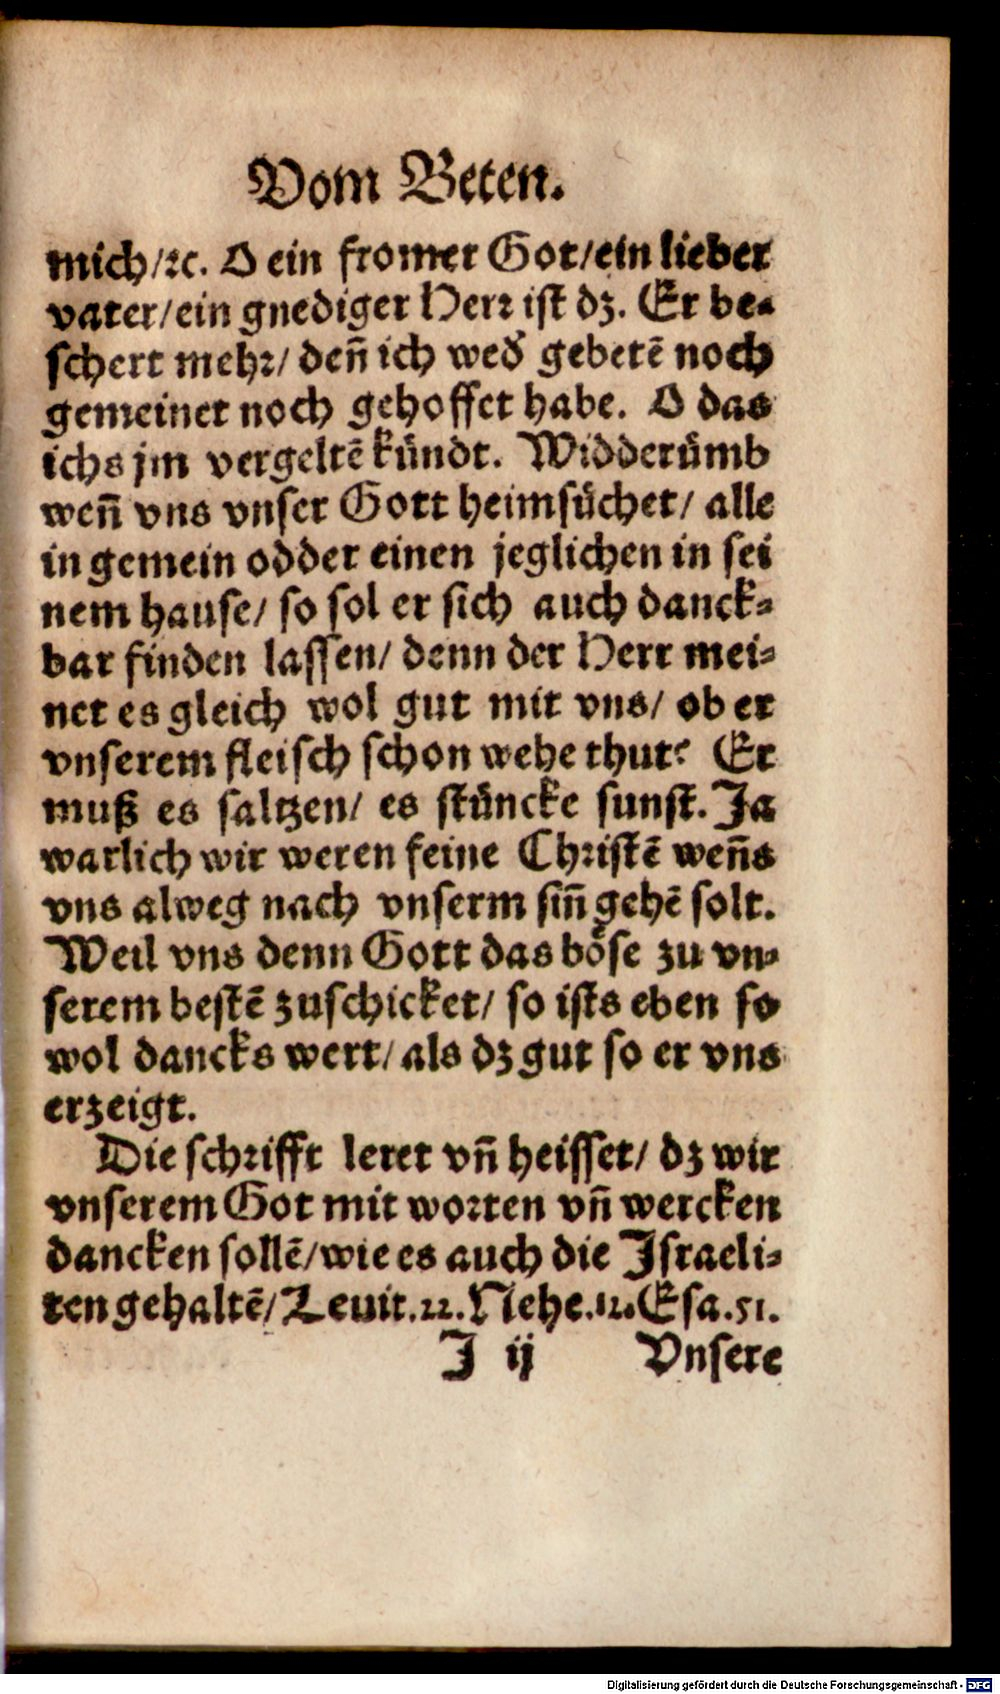 Vom Beten.
mich/ꝛc. O ein fromer Got/ein lieber
vater/ein gnediger Herꝛ ist dz. Er be-
schert mehꝛ/ deñ ich wed̕ gebetē noch
gemeinet noch gehoffet habe. O das
ichs jm vergeltē kündt. Widderümb
weñ vns vnser Gott heimsüchet/ alle
in gemein odder einen jeglichen in sei
nem hause/ so sol er sich auch danck-
bar finden lassen/ denn der Herr mei-
net es gleich wol gut mit vns/ ob er
vnserem fleisch schon wehe thut? Er
muß es saltzen/ es stüncke sunst. Ja
warlich wir weren feine Chꝛistē weñs
vns alweg nach vnserm siñ gehē solt.
Weil vns denn Gott das böse zu vn-
serem bestē zuschicket/ so ists eben so
wol dancks wert/ als dz gut so er vns
erzeigt.
Die schꝛifft leret vñ heisset/ dz wir
vnserem Got mit woꝛten vñ wercken
dancken sollē/wie es auch die Israeli-
ten gehaltē/ Leuit.22. Nehe.12. Esa.51.
J ij Vnsere
Digitalisierung gefördert durch die Deutsche Forschungsgemeinschaft - DFG